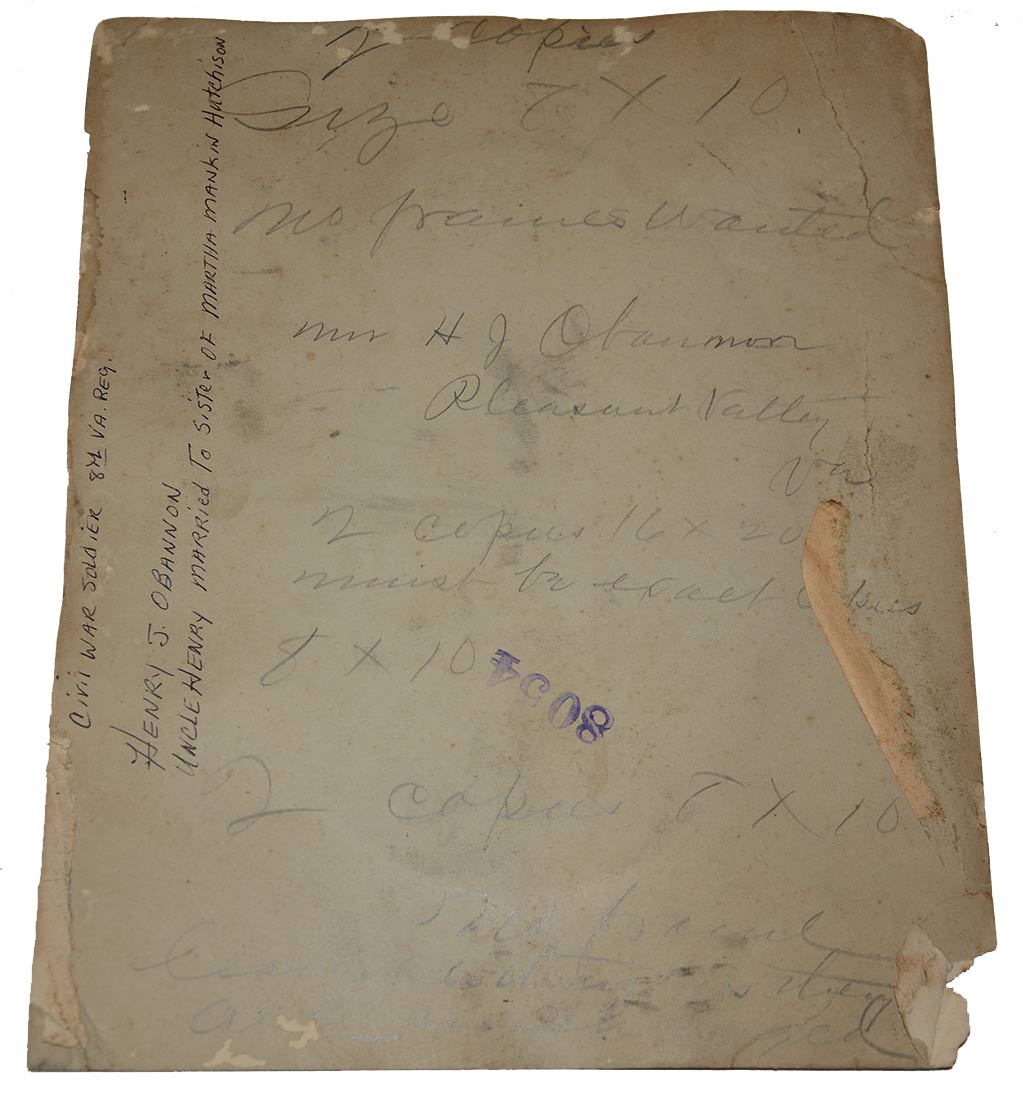 2 copies
Size 8 X 10
no frames Wanted
mr H J Obannon
Pleasant Valley
Va
2 copies 16 x 20
must be exact
8 X 10
8054
2 copies 8 X 10
no frame
Civil WAR SOLDIER 8th VA. REG.
HENRY J. OBANNON
UNCLE HENRY MARRIED To SISTER OF MARTHA MANKIN HUTCHISON